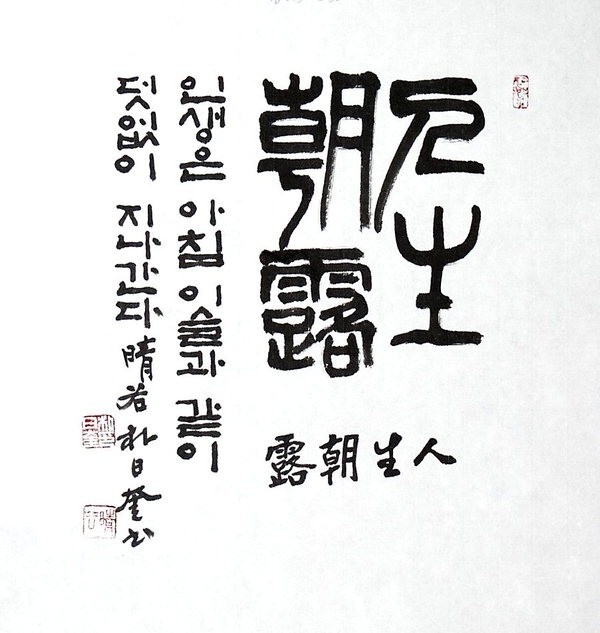 人生
朝露
人生朝露
인생은 아침 이슬과 같이
덧없이 지나간다 晴谷 朴日奎 书